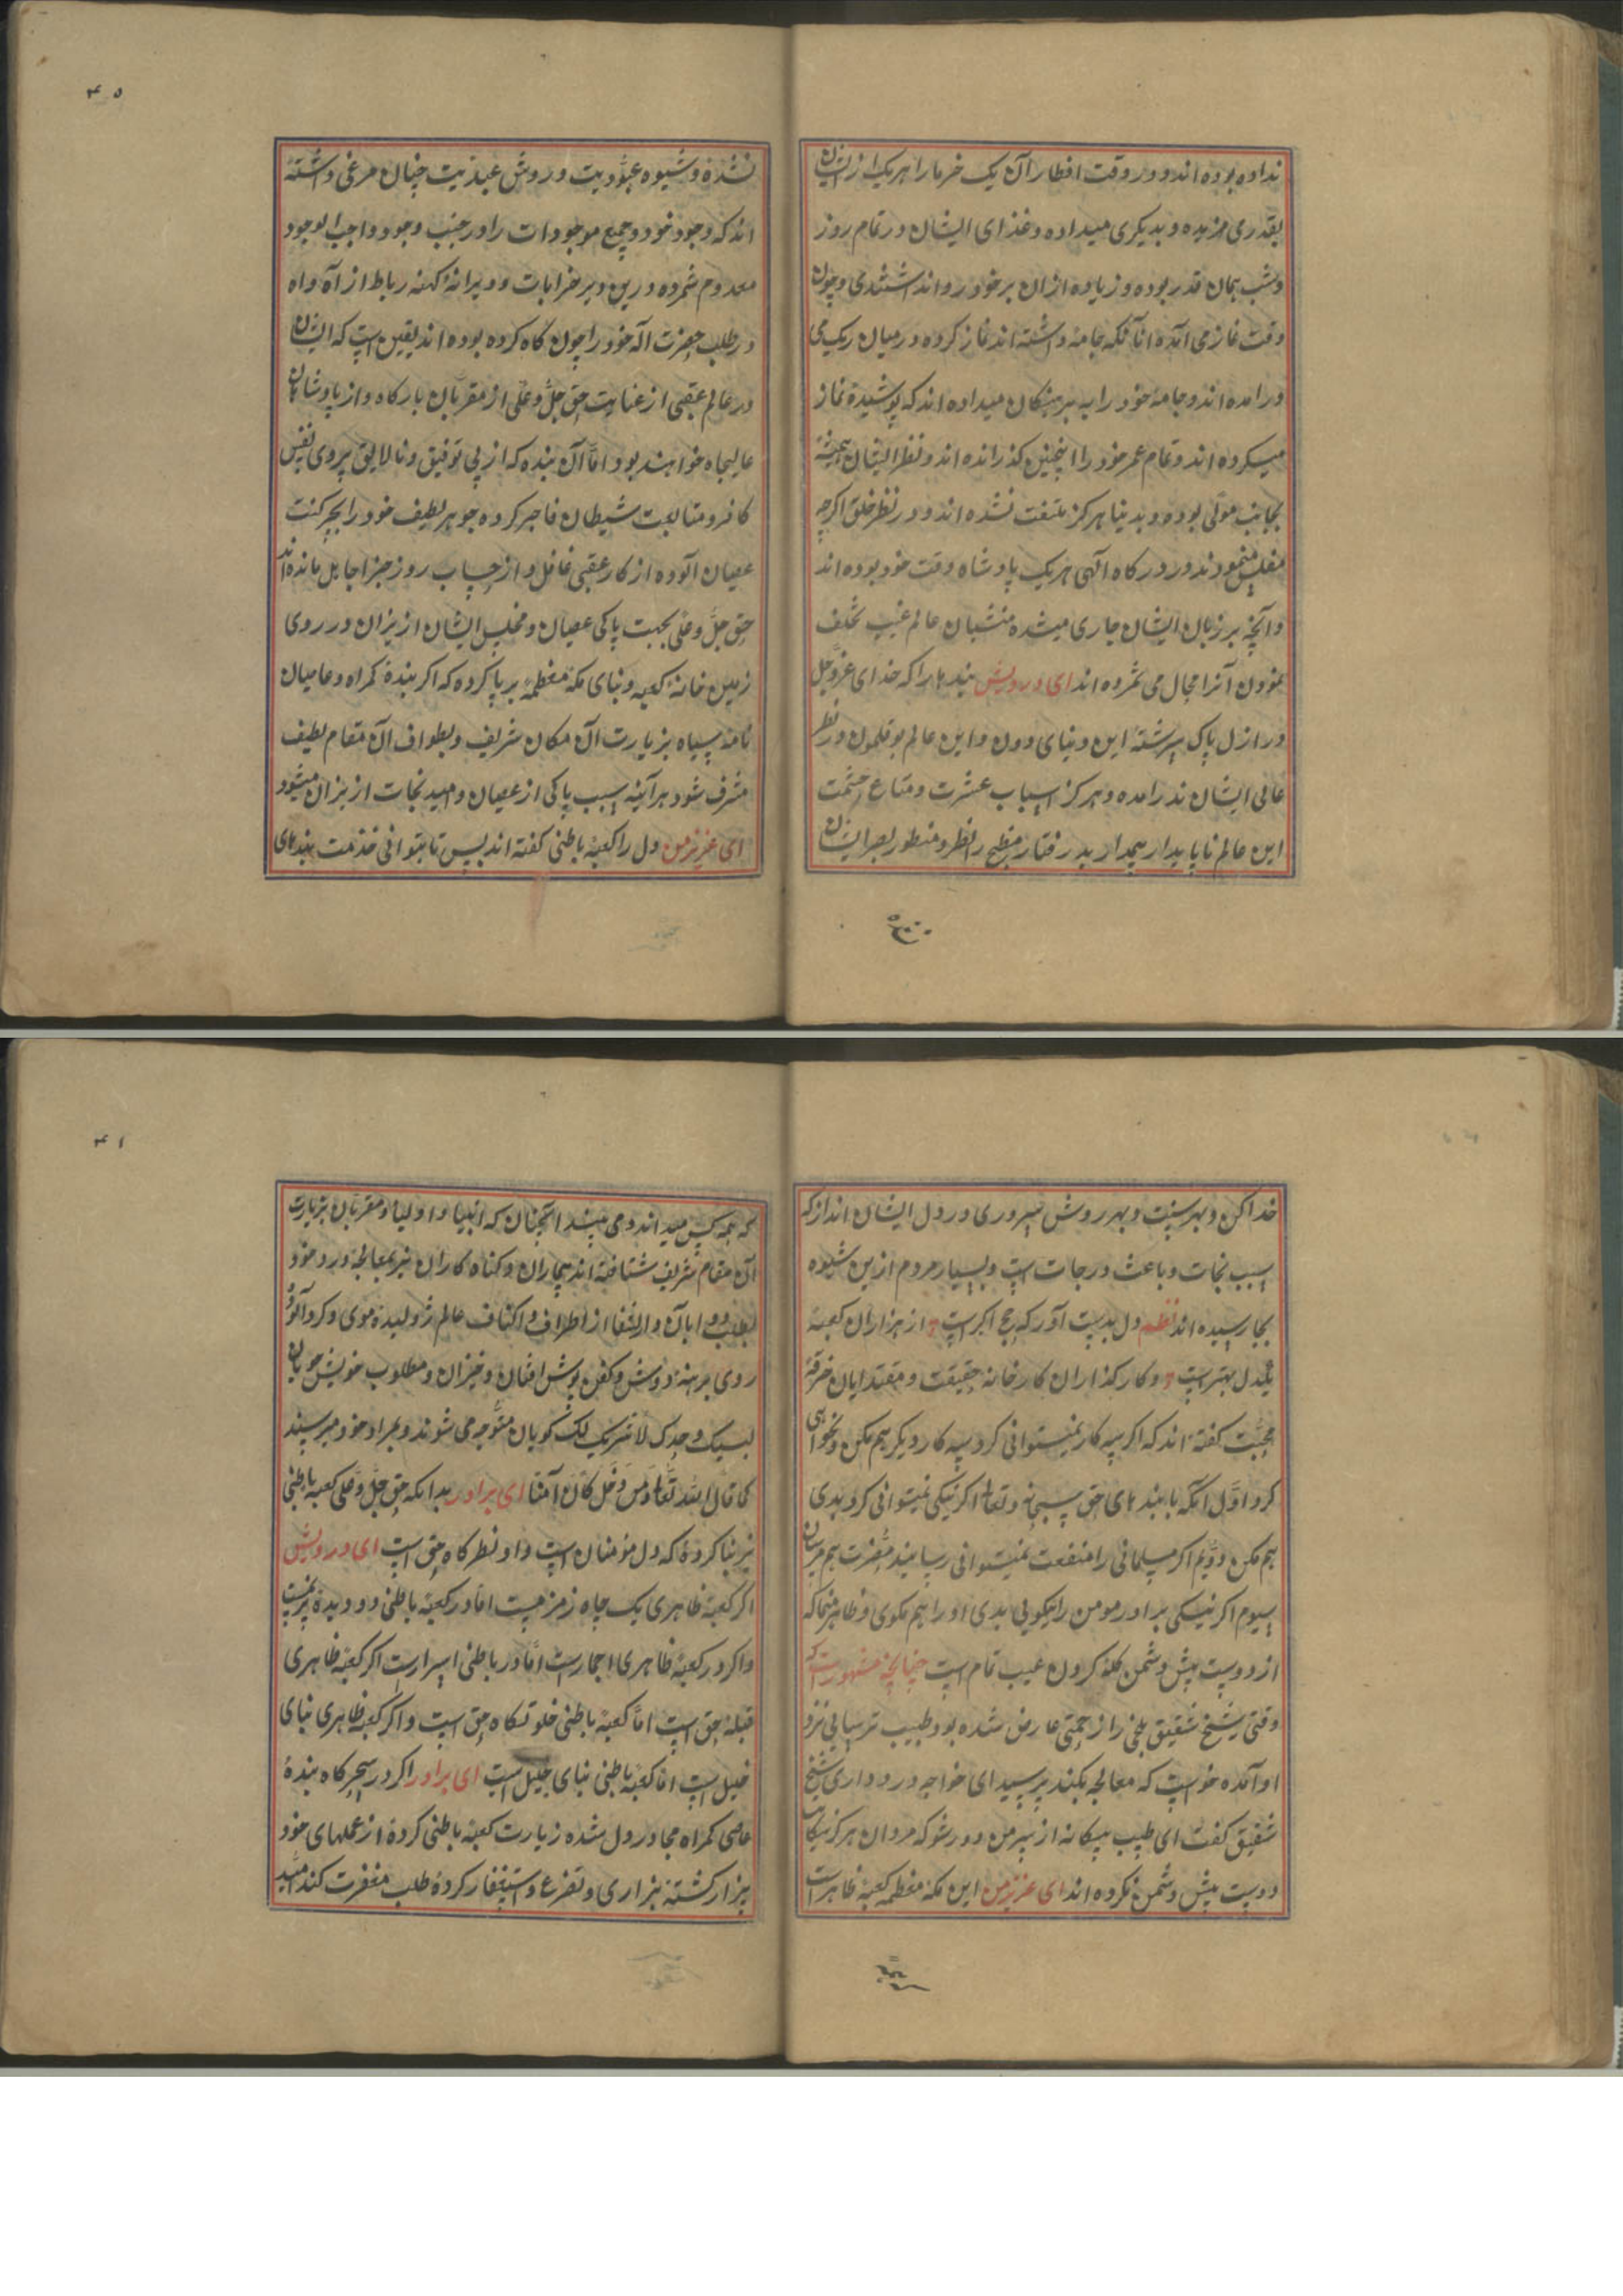 نداده بوده اند و در وقت افطار آن یک خرما را هر یک از ایشان
بقدری مزیده و بدیکری میداده و غذای ایشان در تمام روز
و شب همان قدر بوده و زیاده ازان بر خود روا نداشتندی و چون
وقت نماز می آمده انانکه جامه داشته اند نماز کرده در میان ریک می
درامده اند و جامهٔ خود را به برهنکان میداده اند که پوشیده نماز
میکرده اند و تمام عمر خود را اینچنین کذرانده اند و نظر ایشان همیشه
بجانب مولی بوده و بدینا هرکز ملتفت نشده اند و در نظر خلق اکرچه
مفلس مینمودند و در درکاه آلهی هر یک پادشاه وقت خود بوده اند
و آنچه بر زبان ایشان جاری میشده منشیان عالم غیب تخلف
نمودن آنرا مجال می شمرده اند ای درویش بندهارا که خدای عزوجل
در ازل پاک سرشته این دنیای دون و این عالم بوقلمون در نظر
عالی ایشان ندرامده و هرکز اسباب عشرت و متاع حشمت
این عالم ناپایدار بیمدار بد رفتار مطمح نظر و منظور بصر ایشان
۴۰
نشده و شیوه عبودیت و روش عبدیت چنان مرعی داشته
اند که وجود خود و جمیع موجودات را در جنب وجود واجب الوجود
معدوم شمرده درین دیر خرابات و ویرانهٔ کهنه رباط از آه و اه
در طلب حضرت اله خود را چون کاه کرده بوده اند یقین است که ایشان
در عالم عقبی از عنایت حق جل و علی از مقربان بارکاه و از پادشاهان
عالیجاه خواهند بود اما آن بنده که از بی توفیقی و نالایقی پیروی نفس
کافر و متابعت شیطان فاجر کرده جوهر لطیف خود را بچرکنت
عصیان آلوده از کار عقبی غافل و از حساب روز جزا جاهل مانده اند
حق جل و علی بجهت پاکی عصیان و مخلص ایشان از نیران در روی
زمین خانهٔ کعبه و بنای مکهٔ معظمه بر پا کرده که اکر بندهٔ کمراه و عاصیان
نامه سیاه بزیارت آن مکان شریف و بطواف آن مقام لطیف
مشرف شود هر آینه سبب پاکی از عصیان و امید نجات از نیران میشود
ای عزیز من دل را کعبهٔ باطنی کفته اند پس تا بتوانی خدمت بندهای
خدا کن و بهر سنت و بهر روش سروری در دل ایشان انداز که
سبب نجات و باعث درجات است و بسیار مردم ازین شیوه
بجا رسیده اند نظم دل بدست آور که حج اکبرست از هزاران کعبه
یکدل بهترست و کارکذاران کارخانه حقیقت و مقتدایان خرقهٔ
محبت کفته اند که اکر سه کار نمیتوانی کرد سه کار دیکر هم مکن و نخواهی
کرد اول آنکه با بندهای حق سبحانه و تعالی اکر نیکی نمیتوانی کرد بدی
هم مکن دویم اکر مسلمانی را منفعت نمیتوانی رسانید مضرت هم مرسان
سیوم اکر نیکی برادر مومن را نیکویی بدی او را هم مکوی و ظاهر منما که
از دوست پیش دشمن کله کردن عیب تمام است چنانچه مشهور است که
وقتی شیخ شقیق بلخی را زحمتی عارض شده بود طبیب ترسایی نزد
او آمده خواست که معالجه بکند پرسید ای خواجه درد داری شیخ
شقیق کفت ای طبیب بیکانه از سر من دور شو که مردان هرکز شکایت
دوست پیش دشمن نکرده اند ای عزیز من این مکهٔ معظمه کعبهٔ ظاهر است
۴۱
که همه کس میدانند و می بینند انچنان که انبیا و اولیا و مقربان بزیارت
آن مقام شریف شتافته اند بیچاران و کناه کاران نیز بمعالجهٔ درد خود
بطلب دوا بان دار الشفا از اطراف و اکناف عالم ژولیده موی و کرد آلود
روی برهنه دوش و کفن پوش افتان و خیزان و مطلوب خویش جویان
لبیک وحدک لا شریک لک کویان متوجه می شوند و بمراد خود میرسند
کما قال الله تعالی و من دخله کان آمنا ای برادر بدانکه حق جل و علی کعبهٔ باطنی
نیز بنا کرده که دل مؤمنان است و او نظرکاه حق است ای درویش
اکر کعبهٔ ظاهری یک چاه زمزمیست اما در کعبهٔ باطنی دو دیدهٔ پرنمیست
و اکر در کعبهٔ ظاهری احجارست اما در باطنی اسرارست اکر کعبهٔ ظاهری
قبلهٔ حق است اما کعبهٔ باطنی خلوتکاه حق است و اکر کعبهٔ ظاهری بنای
خلیل است اما کعبهٔ باطنی بنای جلیل است ای برادر اکر در سحرکاه بندهٔ
عاصی کمراه مجاور دل شده زیارت کعبهٔ باطنی کرده از عملهای خود
بیزار کشته بزاری و تضرع و استغفار کرده طلب مغفرت کند امید